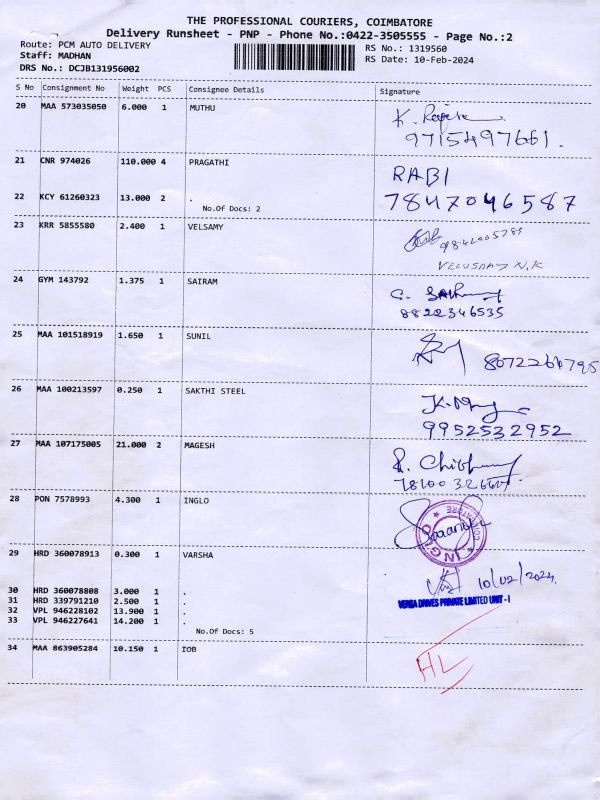 THE PROFESSIONAL COURIERS, COIMBATORE
Delivery Runsheet - PNP - Phone No.:0422-3505555 - Page No.:2
Route: PCM AUTO DELIVERY
RS No.: 1319560
Staff: MADHAN
RS Date: 10-Feb-2024
DRS No.: DCJB131956002
S No Consignment No Weight PCS Consignee Details Signature
20 MAA 573035050 6.000 1 MUTHU
K.
9715497661.
21 CNR 974026 110.000 4 PRAGATHI
RABI
22 KCY 61260323 13.000 2 .
7847046587
No.Of Docs: 2
23 KRR 5855580 2.400 1 VELSAMY
VELUSAMY N.K
24 GYM 143792 1.375 1 SAIRAM
8822346535
25 MAA 101518919 1.650 1 SUNIL
8072266795
26 MAA 100213597 0.250 1 SAKTHI STEEL
9952532952
27 MAA 107175005 21.000 2 MAGESH
28 PON 7578993 4.300 1 INGLO
29 HRD 360078913 0.300 1 VARSHA
10/02/2024
30 HRD 360078808 3.000 1 .
31 HRD 339791210 2.500 1 .
32 VPL 946228102 13.900 1 .
33 VPL 946227641 14.200 1 .
DRIVES PRIVATE LIMITED UNIT - I
No.Of Docs: 5
34 MAA 863905284 10.150 1 IOB
HL